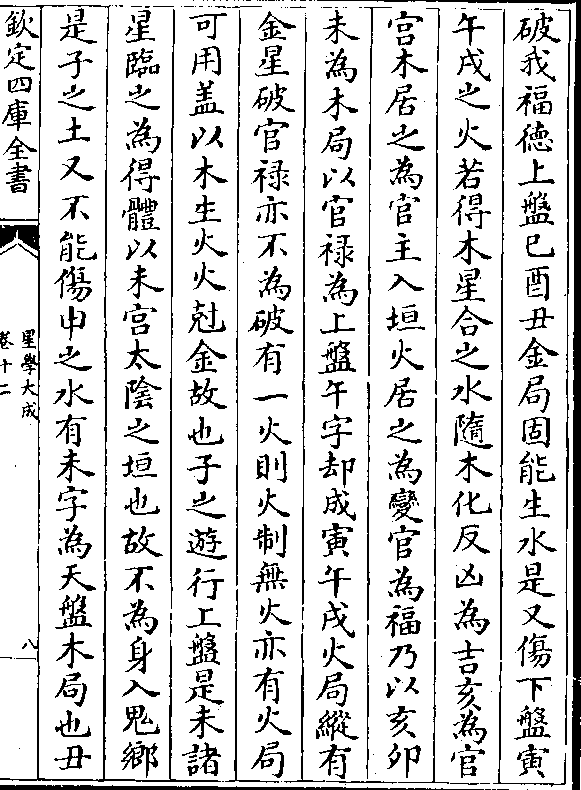 破我福德上盤巳酉丑金局固能生水是又傷下盤寅
午戌之火若得木星合之水隨木化反凶為吉亥為官
宫木居之為官主入垣火居之為變官為福乃以亥卯
未為木局以官禄為上盤午字却成寅午戌火局縱有
金星破官禄亦不為破有一火則火制無火亦有火局
可用盖以木生火火尅金故也子之遊行上盤是未諸
星臨之為得體以未宫太陰之垣也故不為身入鬼鄉
是子之土又不能傷申之水有未字為天盤木局也丑
欽定四庫全書
星學大成
卷十二
八